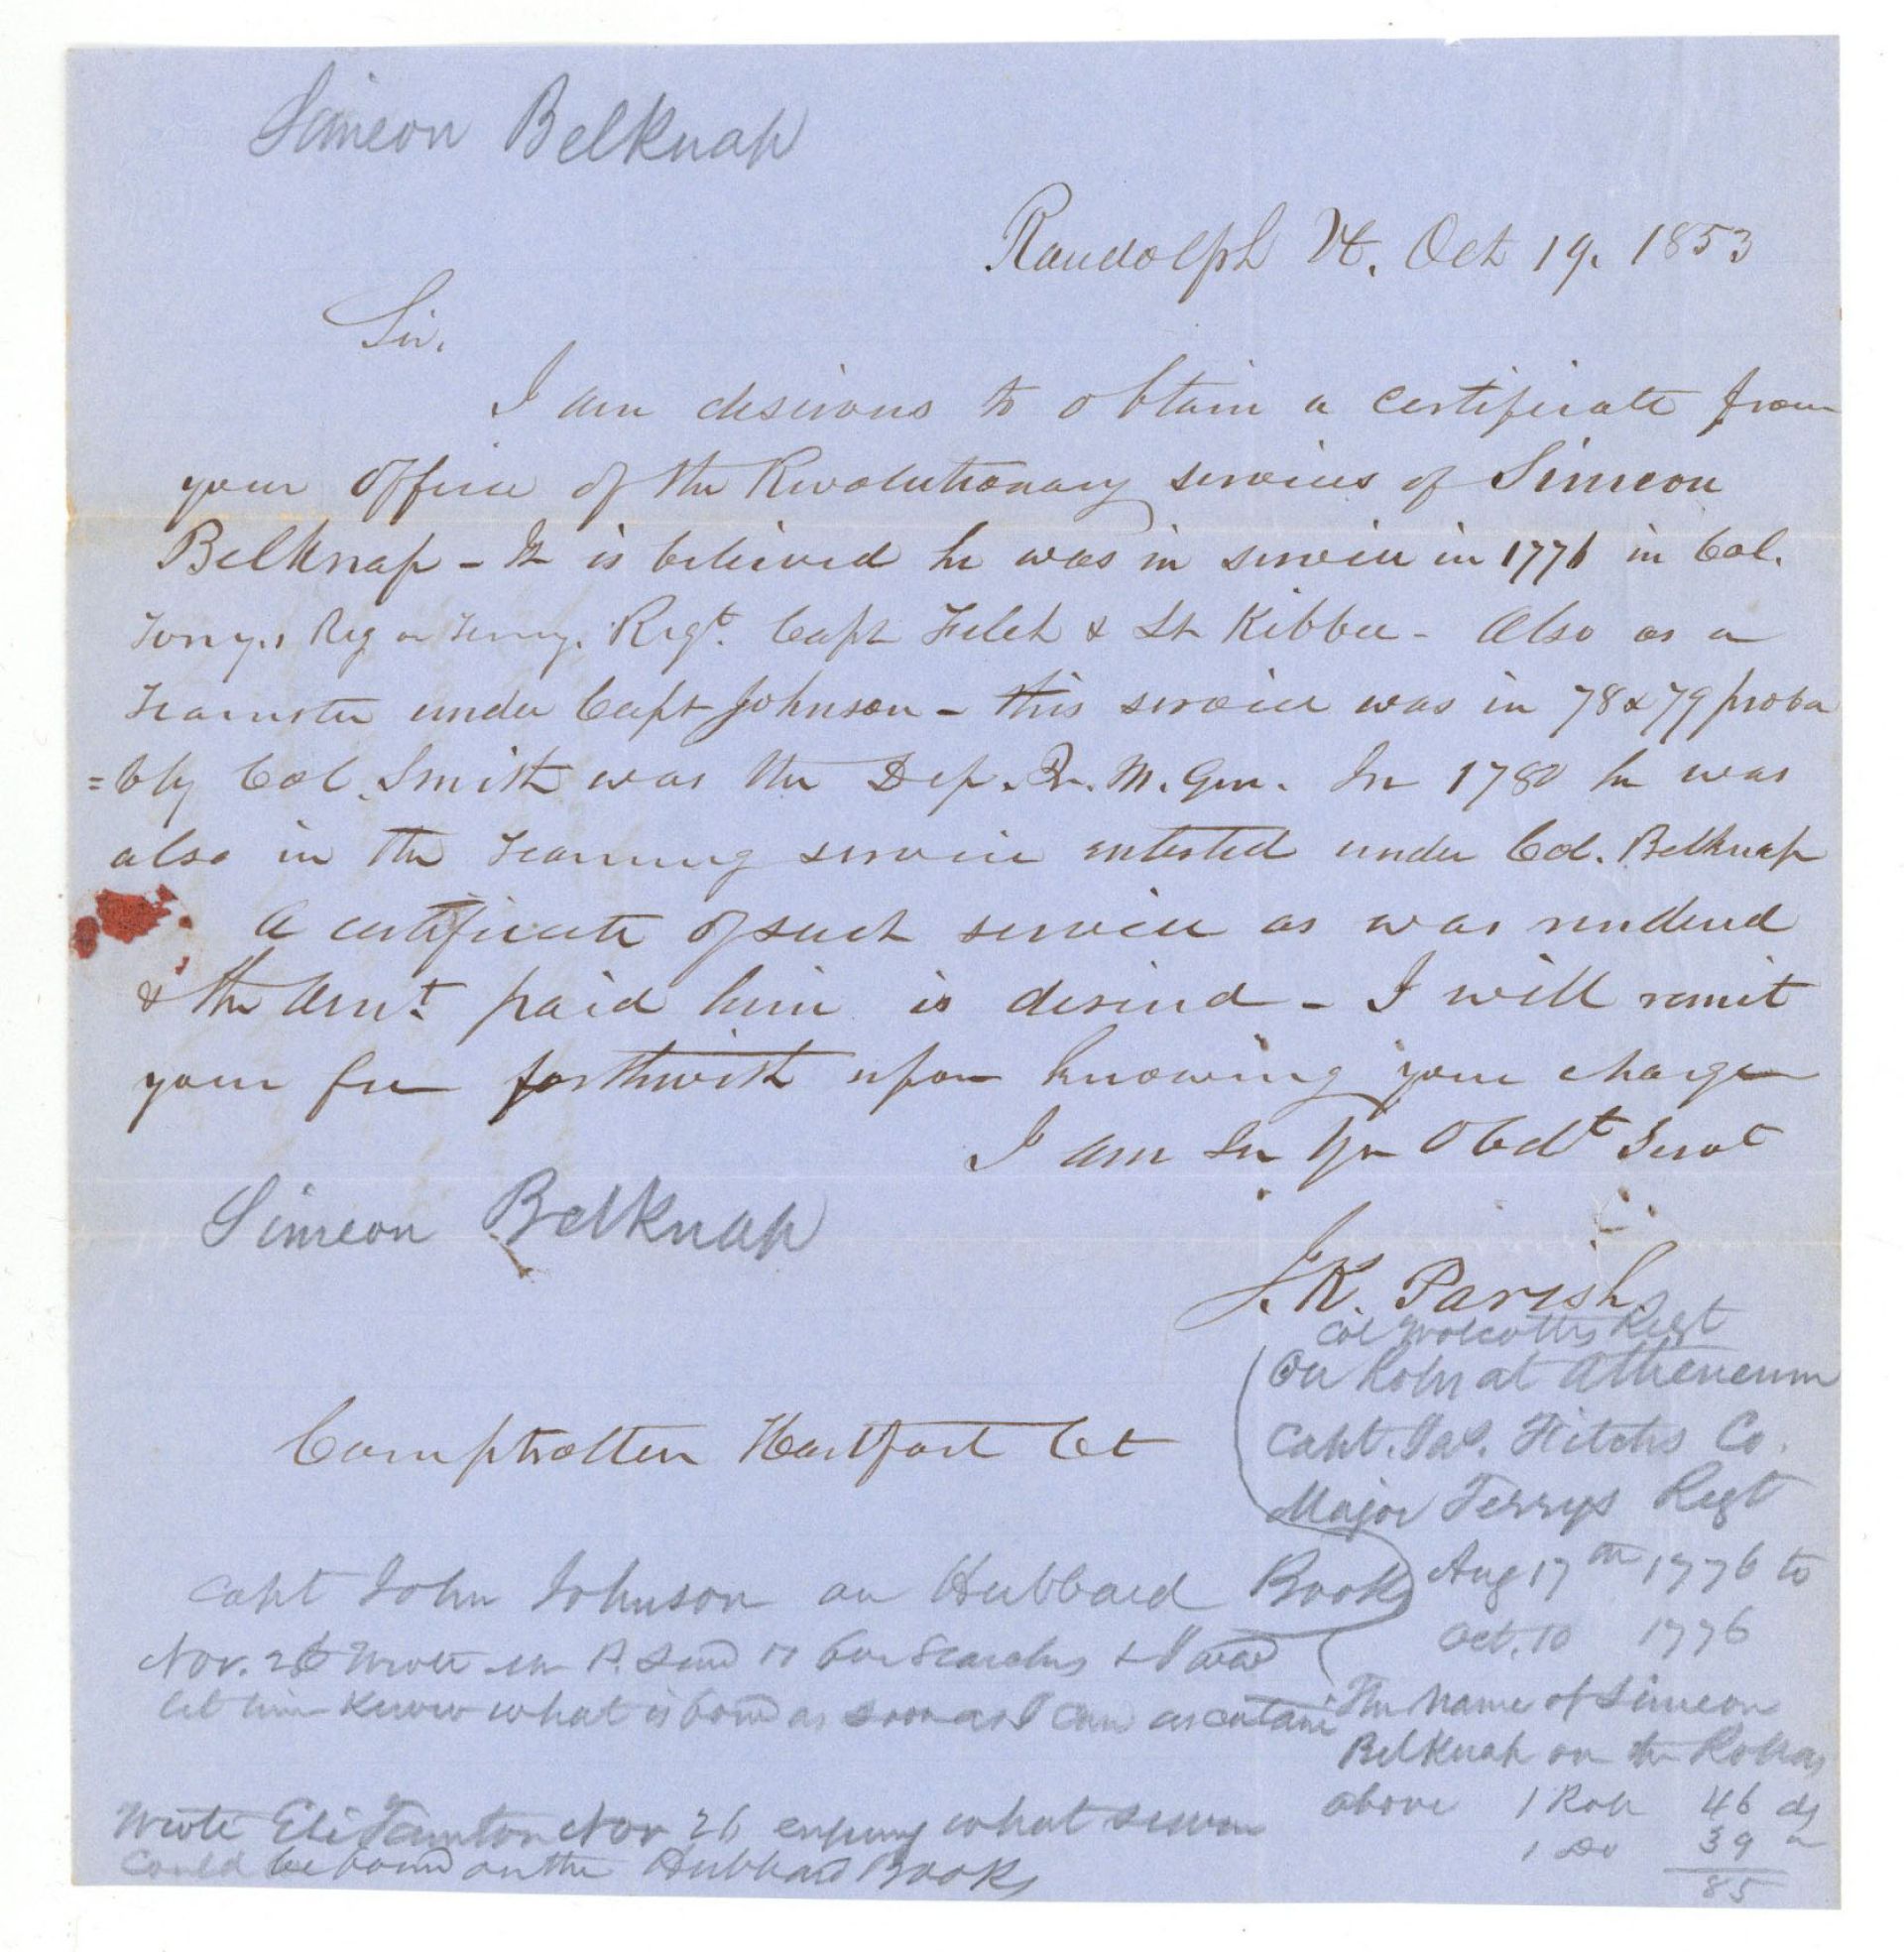 Simeon Belknap
Randolph Vt. Oct 19. 1853
Sir.
I am desirous to obtain a certificate from
your office of the Revolutionary services of Simeon
Belknap - It is believed he was in service in 1776 in Col.
Terrys Reg or Terry. Regt. Capt Felch & Lt Kibbee - Also as a
Teamster under Capt Johnson - this service was in 78 & 79 proba
=bly Col. Smith was the Dep. Qr. M. Gen. In 1780 he was
also in the teaming service enlisted under Col. Belknap
A certificate of such service as was rendered
& the Amt paid him is desired - I will remit
your fee forthwith upon knowing your charge
I am Sir Yr Obdt Servt
Simeon Belknap
J. K. Parish.
Col Wolcotts Regt
On Rolls at Atheneum
Capt. Jas. Fitchs Co.
Major Terrys Regt
Comptroller Hartford Ct
Capt John Johnson on Hubbard Books
Aug 17th 1776 to
Oct. 10 1776
Nov. 26 Wrote Mr P. send for Searches & I would
let him know what is found as soon as I can ascertain
The Name of Simeon
Belknap on the Rolls as
above 1 Roll 46 ds
1 Do 39 "
85
Wrote Eli Nov 26 what
could be found on the Hubbard Books